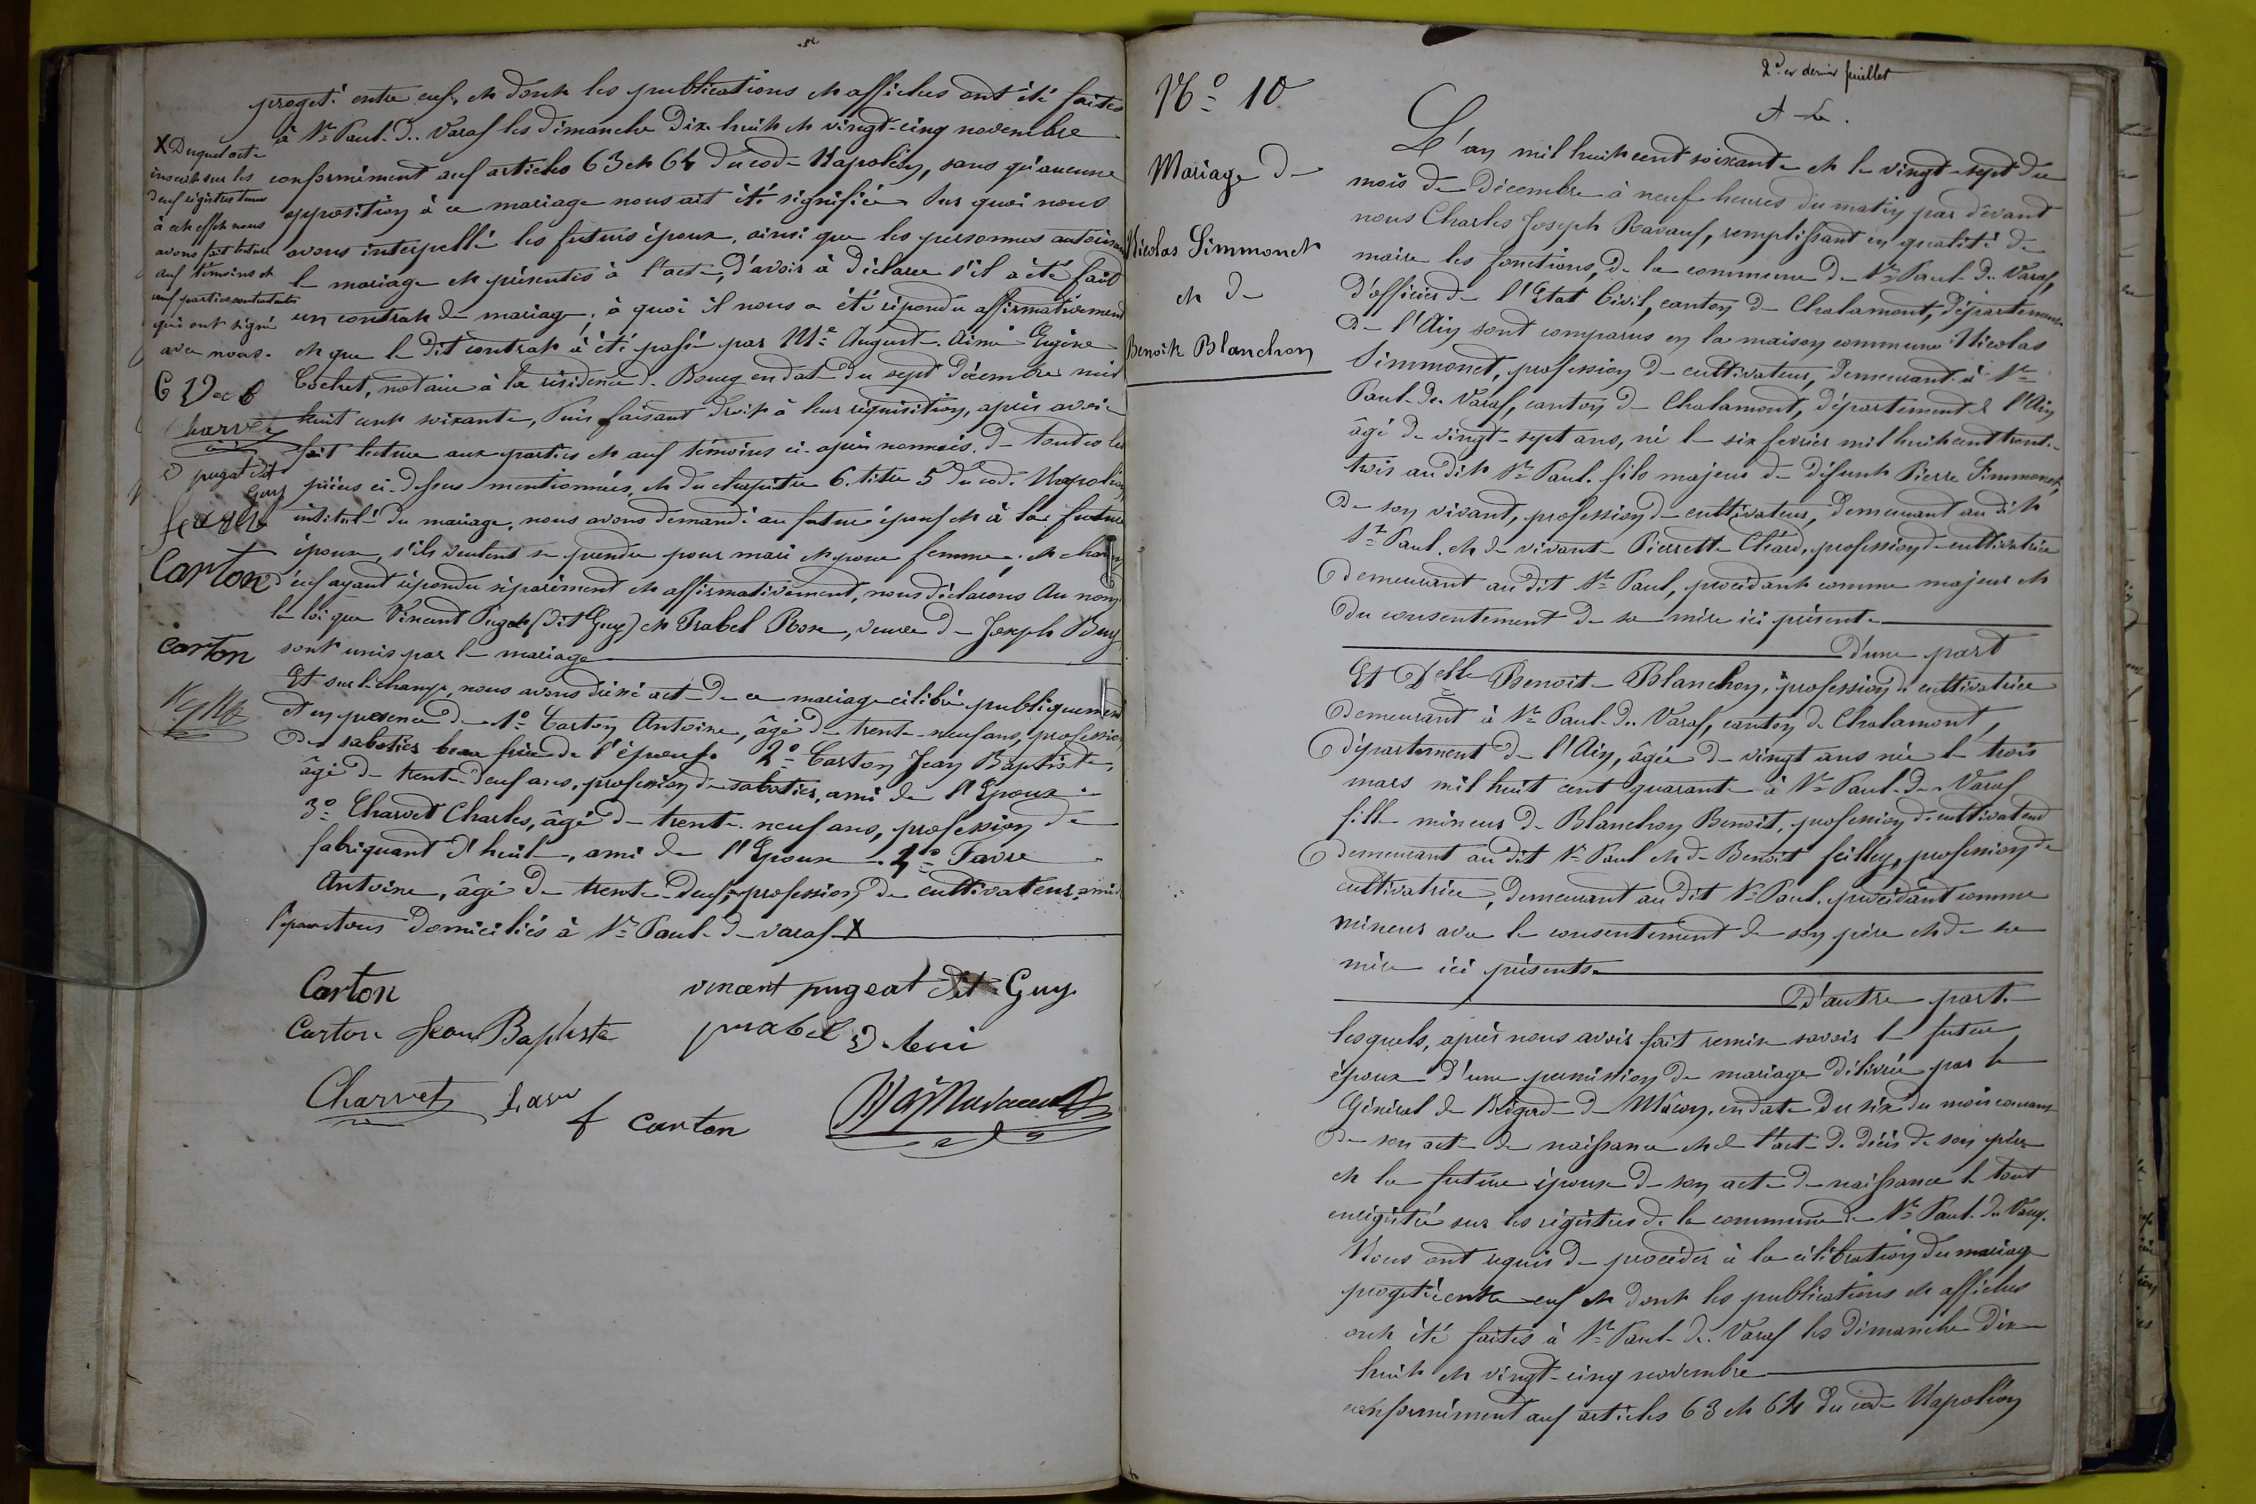 progeté entre eux, et dont les publications et affiches ont été faites
à St Paul-de-Varax les dimanche Dix-huit et vingt-cinq novembre
conformément aux articles 63 et 64 du code Napoléon, sans qu'aucune
opposition à ce mariage nous ait été signifiée Sur quoi nous
avons interpellé les futurs époux, ainsi que les personnes autorisant
le mariage et présentes à l'acte, d'avoir à déclarer s'il a été fait
un contrat de mariage; à quoi il nous a été répondu affirmativement
et que le dit contrat a été passé par Me August Aimé Eugène
Cochet, notaire à la résidence de Bourg en date du sept Décembre mil
huit cent soixante, Puis faisant droit à leur réquisition, après avoir
fait lecture aux parties et aux témoins ci-après nommés, de toutes les
pièces ci-dessus mentionnées, et du chapitre 6. titre 5 du code Napoléon
intitulé du mariage, nous avons demandé au futur époux et à la future
épouse, s'ils veulent se prendre pour mari et pour femme; et chacun
d'eux ayant répondu séparément et affirmativement, nous déclarons Au nom
la loi que Vincent Pugeat (dit Guy) et Prabel Rose, veuve de Joseph Buy
sont unis par le mariage
Et sur-le-champ, nous avons dressé acte de ce mariage célébré publiquement
Et en présence de 1º Carton Antoine, âgé de trente-neuf ans, profession
de sabotier beau frère de l'époux. 2º Carton Jean Baptiste,
âgé de trente-deux ans, profession de sabotier, ami de l'Epoux
3º Charvet Charles, âgé de trente-neuf ans, profession de
fabriquant d'huile, ami de l'Epoux. 4º Favre
Antoine, âgé de trente-deux, profession de cultivateur, ami de
l'époux tous domiciliés à St Paul-de-Varax X
X Duquel acte
inscrit sur les
deux régistres tenus
à cet effet nous
avons fait lecture
aux témoins et
aux parties contractantes
qui ont signé
avec nous.
Charvet
pugeat dit
Guy
favre
Carton
carton
Carton
vincent pugeat dit Guy
Carton Jean Baptiste
prabel
Charvet
favre
f carton
2e et dernier feuillet
No 10
Mariage de
Nicolas Simmonet
et de
Benoite Blanchon
L'an mil huit cent soixante et le vingt-sept du
mois de Décembre à neuf heures du matin par devant
nous Charles Joseph Ravaux, remplissant en qualité de
maire les fonctions, de la commune de St Paul-de-Varax,
d'officier de l'Etat Civil, canton de Chalamont, département
de l'Ain sont comparus en la maison commune Nicolas
Simmonet, profession de cultivateur, demeurant à St
Paul-de-Varax, canton de Chalamont, département de l'Ain
âgé de vingt-sept ans, né le six fevrier mil huit cent trente-
trois audit St Paul. fils majeur de défunt Pierre Simmonet,
de son vivant, profession de cultivateur, demeurant au dit
St Paul. et de vivante Pierrette Chiard, profession de cultivatrice
demeurant au dit St Paul, procédant comme majeur et
du consentement de sa mère ici présente
D'une part
Et Delle Benoite Blanchon, profession de cultivatrice
demeurant à St Paul-de-Varax, canton de Chalamont,
département de l'Ain, âgée de vingt ans née le trois
mars mil huit cent quarante à St Paul-de-Varax
fille mineur de Blanchon Benoit, profession de cultivateur
demeurant au dit St Paul et de Benoite feilley, profession de
cultivatrice, demeurant au dit St Paul, procédant comme
mineur avec le consentement de son père et de sa
mère ici présents
D'autre part.
lesquels, après nous avoir fait remise savoir le futur
époux d'une permission de mariage délivrée par le
Général de Brigade de Mâcon, en date du six du mois courant
de son acte de naissance et de l'acte de décès de son père
et la future épouse de son acte de naissance le tout
enregistré sur les régistres de la commune de St Paul-de-Varax.
Nous ont requis de procéder à la célébration du mariage
progeté entre eux et dont les publications et affiches
ont été faites à St Paul-de-Varax les dimanche dix-
huit et vingt-cinq novembre
conformément aux articles 63 et 64 du code Napoléon